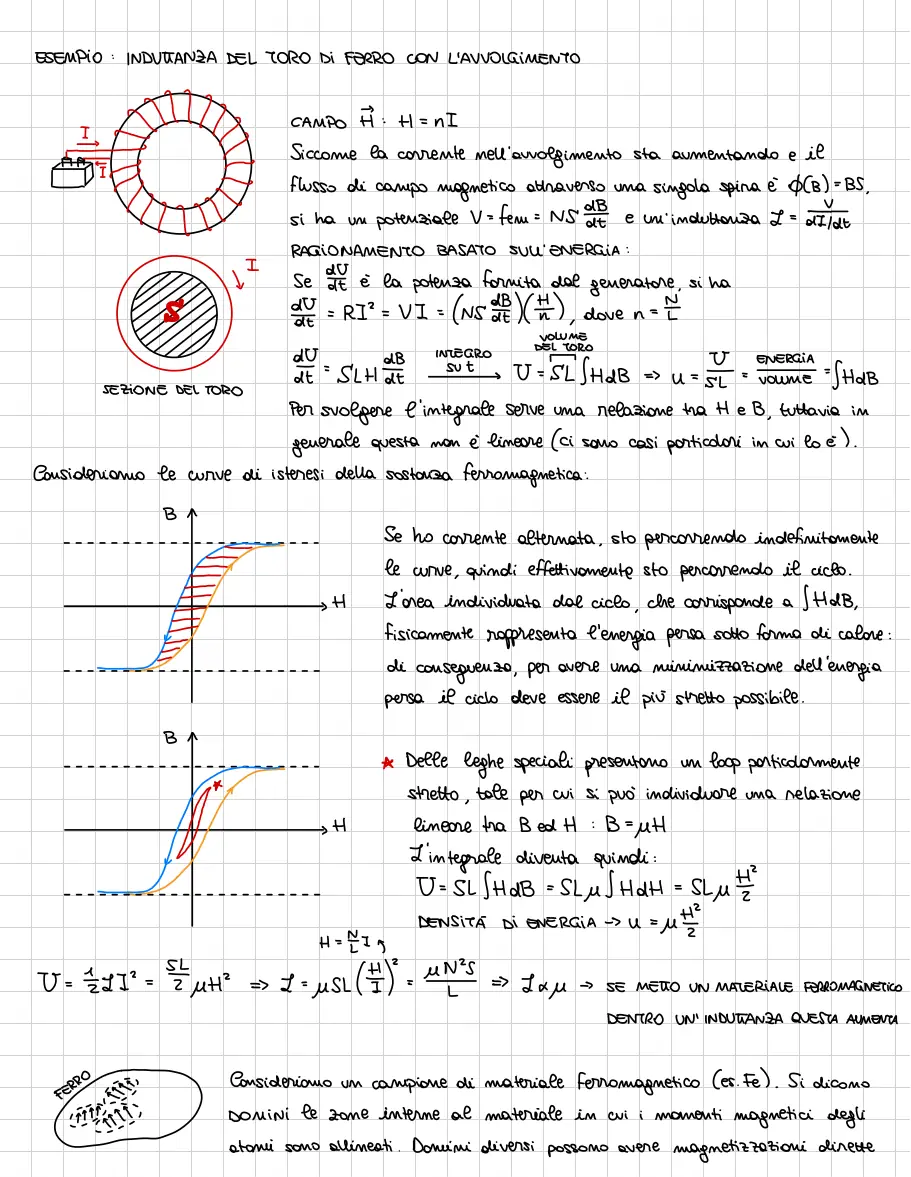 ESEMPIO : INDUTTANZA DEL TORO DI FERRO CON L'AVVOLGIMENTO
I
I
CAMPO H⃗ : H = nI
Siccome la corrente nell'avvolgimento sta aumentando e il
flusso di campo magnetico attraverso una singola spira è ϕ(B) = BS,
si ha un potenziale V = fem = NS dB/dt e un'induttanza L = V/(dI/dt)
RAGIONAMENTO BASATO SULL'ENERGIA :
I
S
SEZIONE DEL TORO
Se dU/dt è la potenza fornita dal generatore, si ha
dU/dt = RI² = VI = (NS dB/dt)(H/n), dove n = N/L
VOLUME DEL TORO
dU/dt = SLH dB/dt INTEGRO SU t ⟶ U = SL ∫HdB => u = U/SL = ENERGIA/VOLUME = ∫HdB
Per svolgere l'integrale serve una relazione tra H e B, tuttavia in
generale questa non è lineare (ci sono casi particolari in cui lo è).
Consideriamo le curve di isteresi della sostanza ferromagnetica:
B
H
Se ho corrente alternata, sto percorrendo indefinitamente
le curve, quindi effettivamente sto percorrendo il ciclo.
L'area individuata dal ciclo, che corrisponde a ∫HdB,
fisicamente rappresenta l'energia persa sotto forma di calore:
di conseguenza, per avere una minimizzazione dell'energia
persa il ciclo deve essere il più stretto possibile.
B
H
*
* Delle leghe speciali presentano un loop particolarmente
stretto, tale per cui si può individuare una relazione
lineare tra B ed H : B = μH
L'integrale diventa quindi:
U = SL ∫HdB = SL μ ∫HdH = SL μ H²/2
DENSITÀ DI ENERGIA → u = μ H²/2
H = N/L I
U = 1/2 LI² = SL/2 μH² => L = μSL (H/I)² = μN²S/L => L ∝ μ → SE METTO UN MATERIALE FERROMAGNETICO
DENTRO UN'INDUTTANZA QUESTA AUMENTA
FERRO
Consideriamo un campione di materiale ferromagnetico (es. Fe). Si dicono
DOMINI le zone interne al materiale in cui i momenti magnetici degli
atomi sono allineati. Domini diversi possono avere magnetizzazioni dirette